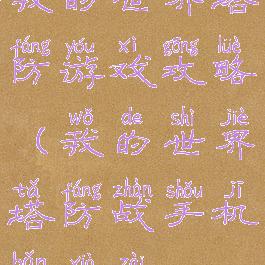 我的世界塔
fáng yóu xì gōng lüè
防游戏攻略
wǒ de shì jiè
（我的世界
tǎ fáng zhàn shǒu jī
塔防战手机
bǎn xià zài